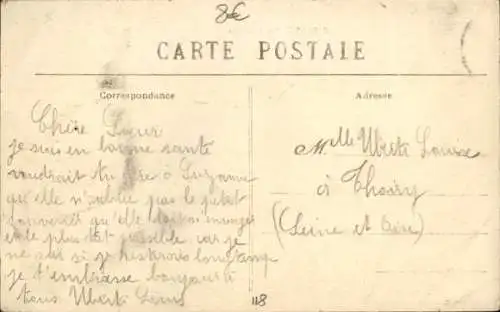 8€
CARTE POSTALE
Correspondance
Adresse
Chère Sœur
je suis en bonne santé
voudrait tu dire à Suzanne
qu'elle n'oublie pas le petit
souvenir qu'elle doit
le plus tôt possible car je
ne sui si je resterais longtemp
je t'embrasse bonjour à
tous
Melle Louise
à Thoiry
(Seine et Oise)
118